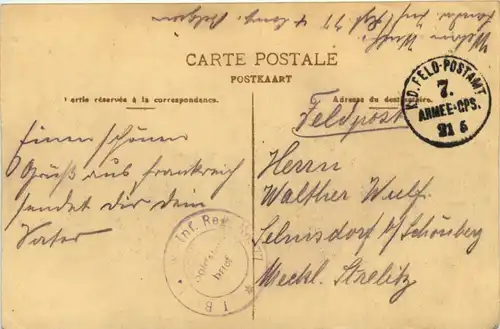 CARTE POSTALE
POSTKAART
Partie réservée à la correspondance.
Adresse du destinataire.
Feldpost
K.D. FELD-POSTAMT
7.
ARMEE-CPS.
21 5
Einen schönen
Gruß aus Frankreich
sendet dir dein
Vater
Herrn
Walther Wulf
Selmsdorf b/ Schönberg
Meckl. Strelitz
Inf. Reg. 77
brief